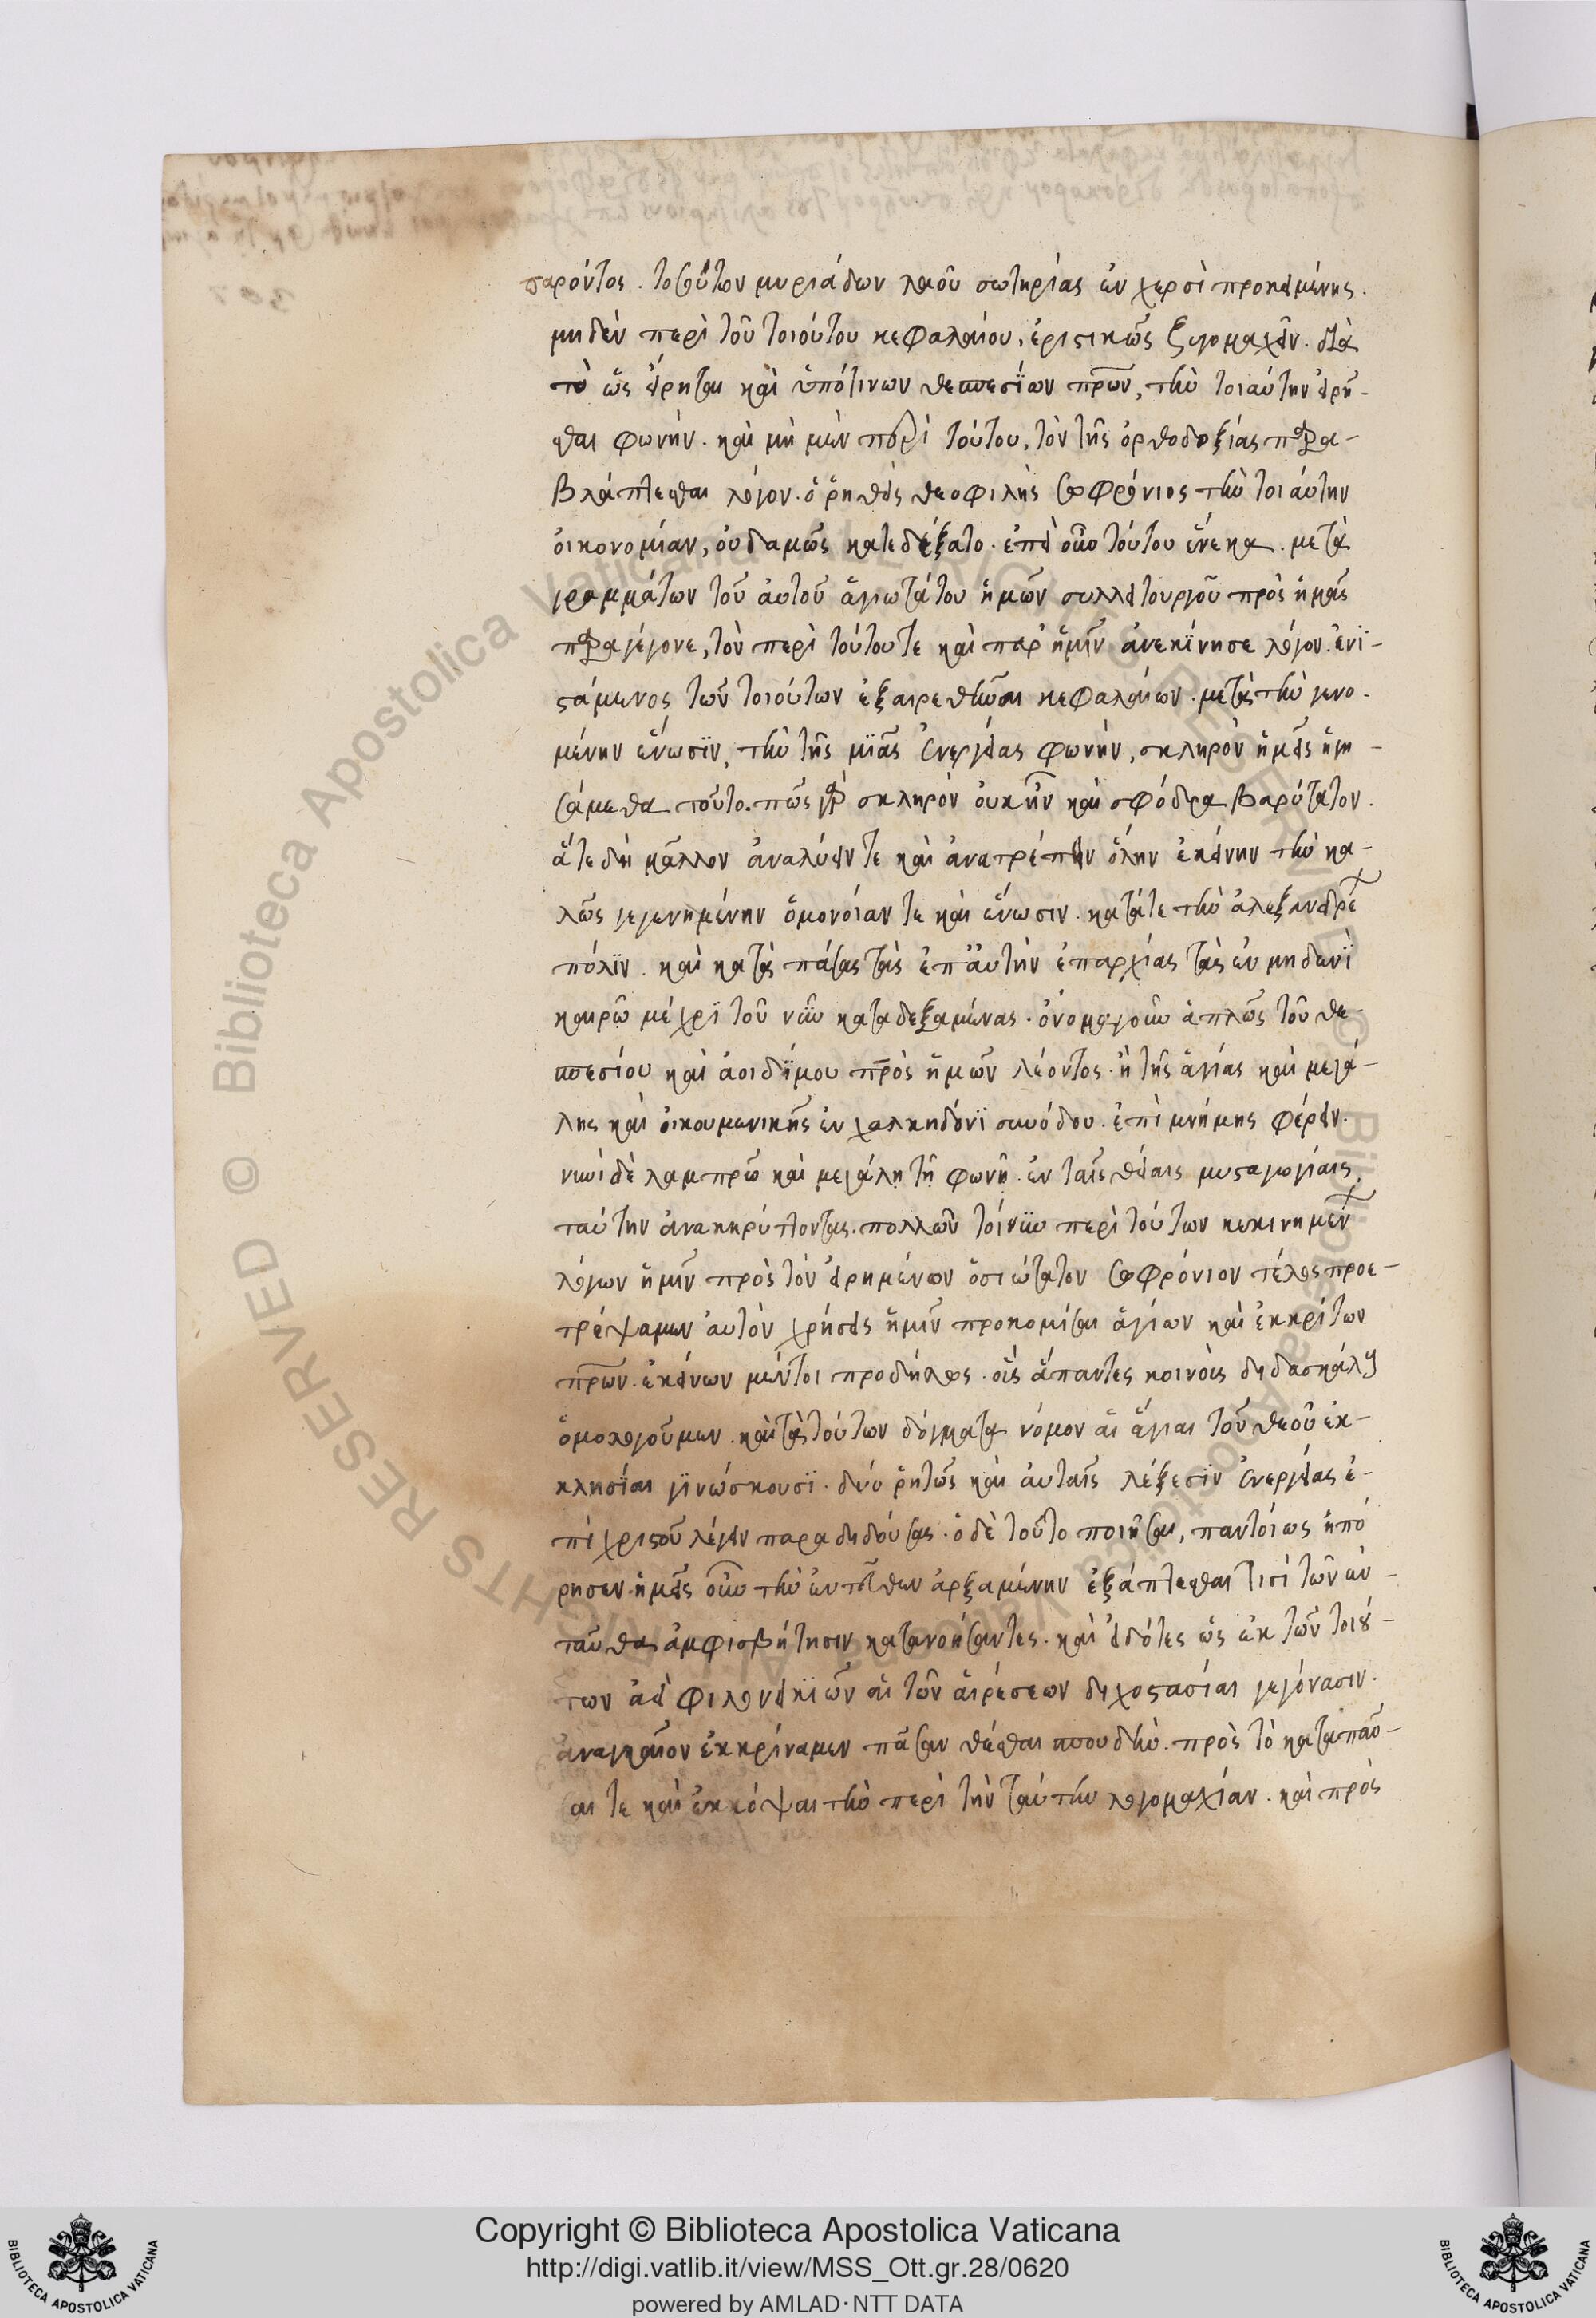 παρόντος. τοσούτων μυριάδων λαοῦ σωτηρίας ἐν χερσὶ προκειμένης.
μηδὲν περὶ τοῦ τοιούτου κεφαλαίου, ἐριστικῶς ζυγομαχεῖν. διὰ
τὸ ὡς εἴρηται καὶ ὑπότινων θεσπεσίων πρων, τὴν τοιαύτην εἰρῆ-
σθαι φωνήν. καὶ μὴ μὲν περὶ τούτου, τὸν τῆς ὀρθοδοξίας παρα-
βλάπτεσθαι λόγον. ὁ ῥηθεὶς θεοφιλὴς σωφρόνιος τὴν τοιαύτην
οἰκονομίαν, οὐδαμῶς κατεδέξατο. ἐπεὶ οὖν τούτου ἕνεκα. μετὰ
γραμμάτων τοῦ αὐτοῦ ἁγιωτάτου ἡμῶν συλλειτουργοῦ πρὸς ἡμᾶς
παραγέγονε, τὸν περὶ τούτου τε καὶ παρ ἡμῖν ἀνεκίνησε λόγον. ἐνϊ-
στάμενος τῶν τοιούτων ἐξαιρεθῆναι κεφαλαίων. μετὰ τὴν γενο-
μένην ἕνωσϊν, τὴν τῆς μϊᾶς ἐνεργείας φωνὴν, σκληρὸν ἡμεῖς ἡγη-
σάμεθα τοῦτο. πῶς γὰρ σκληρὸν οὐκ ἦν καὶ σφόδρα βαρύτατον.
ἅτε δὴ μᾶλλον ἀναλύειν τε καὶ ἀνατρέπειν ὅλην ἐκείνην τὴν κα-
λῶς γεγενημένην ὁμονοίαν τε καὶ ἕνωσιν. κατάτε τὴν ἀλεξανδρέ
πόλϊν. καὶ κατὰ πάσας τὰς ἐπ αὐτὴν ἐπαρχίας τὰς ἐν μηδενὶ
καιρῶ μέχρϊ τοῦ νῦν καταδεξαμένας. ὄνομα γοῦν ἁπλῶς τοῦ θε-
σπεσίου καὶ ἀοιδΐμου πρὸς ἡμῶν λέοντος. ἢ τῆς ἁγίας καὶ μεγά-
λης καὶ οἰκουμενικῆς ἐν χαλκηδόνϊ συνόδου. ἐπὶ μνήμης φέρειν.
νυνὶ δὲ λαμπρῶ καὶ μεγάλη τῆ φωνῆ. ἐν ταῖς θείαις μυσταγωγίαις,
ταύτην ἀνακηρύττοντας. πολλῶν τοίνυν περὶ τούτων κεκινημέν
λόγων ἡμῖν πρὸς τὸν εἰρημένον ὁσιώτατον σωφρόνιον τέλος προε-
τρέψαμεν αὐτὸν χρήσεις ἡμῖν προκομίσαι ἁγίων καὶ ἐκκρίτων
πρων. ἐκείνων μέντοι προδήλως. οἷς ἅπαντες κοινοῖς διδασκάλοις
ὁμολογοῦμεν. καὶ τὰ τούτων δόγματα νόμον αἱ ἅγιαι τοῦ θεοῦ ἐκ-
κλησΐαι γϊνώσκουσϊ. δύο ῥητῶς καὶ αὐταῖς λέξεσϊν ἐνεργείας ἐ-
πὶ χριστοῦ λέγειν παραδιδούσας. ὁ δὲ τοῦτο ποιῆσαι, παντοίως ἠπό
ρησεν. ἡμεῖς οὖν τὴν ἐντεῦθεν ἀρξαμένην ἐξάπτεσθαι τισὶ τῶν ἐν-
ταῦθα ἀμφισβήτησιν κατανοήσαντες. καὶ εἰδότες ὡς ἐκ τῶν τοιού-
των ἀεὶ φιλονεικϊῶν αἱ τῶν αἱρέσεων διχοστασίαι γεγόνασιν.
ἀναγκαῖον ἐκκρίναμεν πᾶσαν θέσθαι σπουδὴν. πρὸς τὸ καταπαῦ-
σαι τε καὶ ἐκκόψαι τὴν περὶ τὴν ταύτην λογομαχίαν. καὶ πρὸς
Copyright © Biblioteca Apostolica Vaticana
http://digi.vatlib.it/view/MSS_Ott.gr.28/0620
powered by AMLAD·NTT DATA